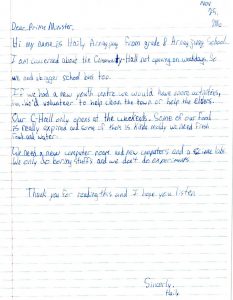 Nov
25,
Dear Prime Minister,
Hi my name is from grade 8 School
I am concerned about the Community-Hall not opening on weekdays. So
we and bigger school bus too.
If we had a new youth centre we would have more activities,
we'd volunteer to help clean the town or help the Elders.
Our C-Hall only opens at the weekends. Some of our food
is really expired and some of them is kinda ready we need fresh
food and water.
We need a new computer room and new computers and a science lab.
We only do boring stuffs and we don't do experiments.
Thank you for reading this and I hope you listen
Sincerly,